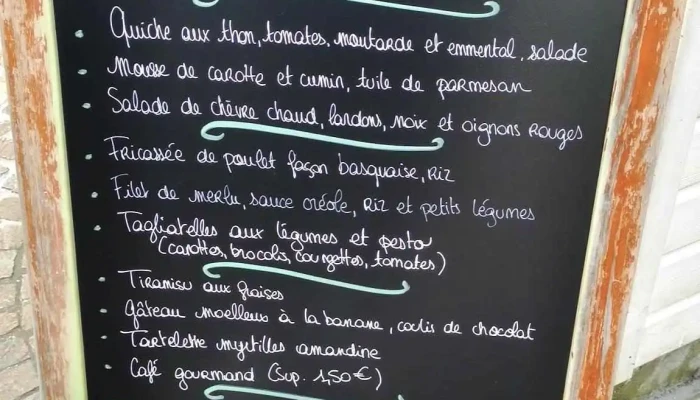 • Quiche aux thon, tomates, moutarde et emmental, salade
• Mousse de carotte et cumin, tuile de parmesan
• Salade de chèvre chaud, lardons, noix et oignons rouges
• Fricassée de poulet façon basquaise, riz
• Filet de merlu, sauce créole, riz et petits légumes
• Tagliatelles aux légumes et pesto
(carottes, brocolis, courgettes, tomates)
• Tiramisu aux fraises
• Gâteau moelleux à la banane, coulis de chocolat
• Tartelette myrtilles amandine
• Café gourmand (sup. 1,50€)